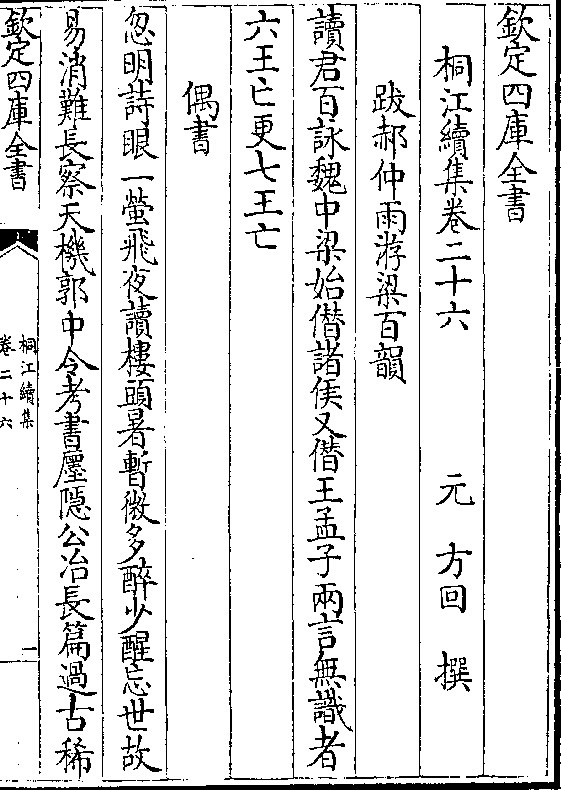 欽定四庫全書
桐江續集卷二十六
元 方回 撰
跋郝仲雨游梁百韻
讀君百詠魏中梁始僣諸侯又僣王孟子兩言無識者
六王亡更七王亡
偶書
忽明詩眼一螢飛夜讀樓頭暑暫微多醉少醒忘世故
易消難長察天機郭中令考書廛隠公冶長篇過古稀
欽定四庫全書
桐江續集
卷二十六
一